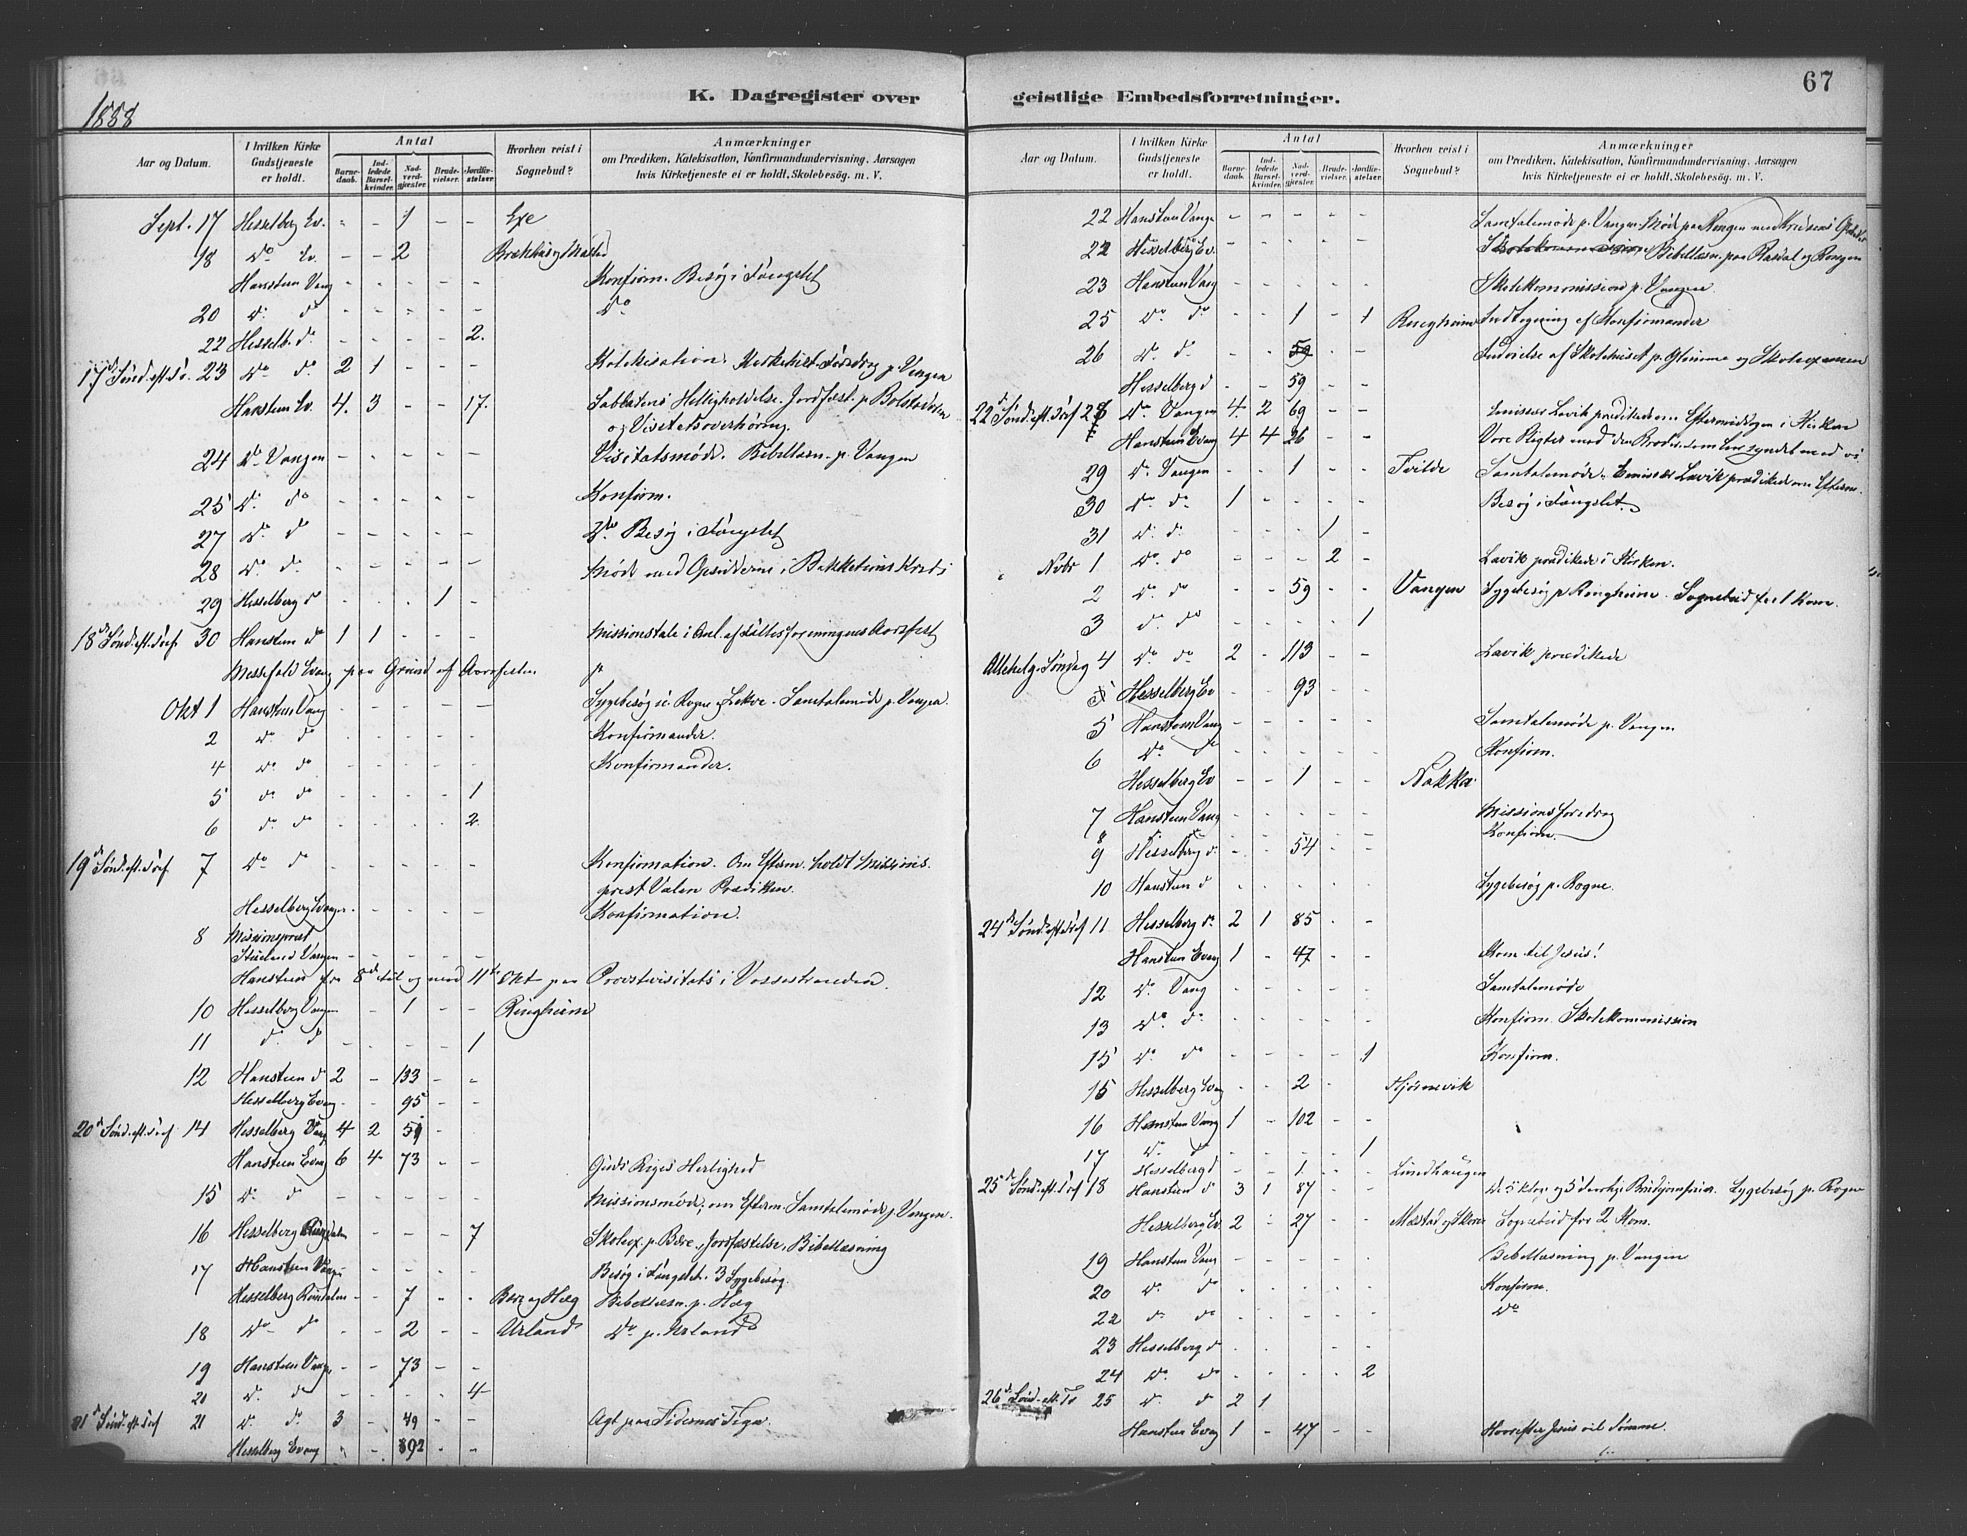 67
K. Dagregister over geistlige Embedsforretninger.
1888
Aar og Datum. I hvilken Kirke Gudstjeneste er holdt. Antal Barnedaab. Indledede Barselkvinder. Nadverdgjester. Brudevielser. Jordfæstelser. Hvorhen reist i Sognebud? Anmærkninger om Prædiken, Katekisation, Konfirmandundervisning, Aarsagen hvis Kirketjeneste ei er holdt, Skolebesøg. m. V.
Sept. 17 Hesselberg Ev. - - 1 - -
18 do Ev. - - 2
Hansteen Vang - - - - - Konfirm. Besøg i Fængslet
20 do do - - - - - do
22 Hesselb. do - - - - 2.
17d Sønd. eft. 23 do do 2 1 - - - Katekisation. p. Vangen
Hansteen Ev. 4. 3 - - 17. Sabbatens Helligholdelse. Jordfæst. p.
og Visitatsoverhøring.
24 do Vangen - - - - - Visitatsmøde. Bibellæsn. p. Vangen
25 do do - - - - - Konfirm.
27 do do - - - - - do Besøg i Fængslet
28 do do - - - - - Møde med i Kreds
29 Hesselberg do - - - 1 -
18d Sønd. eft. 30 Hansteen do 1 1 - - - Missionstale i
Messefald Evang paa Grund af
Okt 1 Hansteen Vang - - - - - Sygebesøg Rogne og Lekve. Samtalemøde p. Vangen
2 do do - - - - - Konfirmander.
4 do do - - - - - Konfirmander.
5 do do - - - - 1
6 do do - - - - 2
19d Sønd. eft. 7 do do - - - - - Konfirmation. Om Efterm. holdt Missions
prest Valen Prædiken.
Hesselberg Evanger. - - - - - Konfirmation.
8 Missionsprest
Vangen - - - - -
Hansteen fra 8de til og med 11te Okt paa Provstevisitats i Vossestranden.
10 Hesselberg Vangen - 1 - - Ringheim
11 do do - - - - 1
12 Hansteen do 2 - 133 - -
Hesselberg Evang - - 95 - -
20d Sønd. eft. 14 Hesselberg Vang 4 2 59 - -
Hansteen Evang 6 4 73 - - Guds Riges Herlighed
15 do do - - - - - Missionsmøde, om Efterm. Samtalemøde p. Vangen.
16 Hesselberg - - - - 7 Skoleex. p. Jordfæstelse, Bibellæsning
17 Hansteen Vang - - - - - Besøg i Fængslet. 3 Sygebesøg.
Hesselberg - - 7 - - og Hæg Bibellæsn. p. Hæg
18 do do - - 2 - - Urland do p. Urland
19 Hansteen Vange - - 73 - -
20 do do - - - - 4
21d Sønd. eft. 21 do do 3 - 49 - - Agt paa Tidernes Tegn.
Hesselberg Evang - - 92 - -
K. Dagregister over geistlige Embedsforretninger.
Aar og Datum. I hvilken Kirke Gudstjeneste er holdt. Antal Barnedaab. Indledede Barselkvinder. Nadverdgjester. Brudevielser. Jordfæstelser. Hvorhen reist i Sognebud? Anmærkninger om Prædiken, Katekisation, Konfirmandundervisning, Aarsagen hvis Kirketjeneste ei er holdt, Skolebesøg. m. V.
22 Hansteen Vange - - - - - Samtalemøde p. Vangen. Møde paa Rongen med Kredsens
22 Hesselberg Ev. - - - - - Bibellæsn. paa Rasdal og Rongen
23 Hansteen Vang - - - - - Skolekommission p. Vangen.
25 do do - - 1 - 1 Ringheim Indtegning af Konfirmander
26 do do - - 59 - - Indvielse af Skolehuset p. og Skoleexamen
Hesselberg do - - 59 - -
22d Sønd. eft. 28 do Vangen 4. 2 69 - - Emissær Lavik prædikede om Eftermiddagen i Kirken
Hansteen Evang 4 4 26 - - Vore Pligter mod den Broder som har syndet mod os
29 do Vangen - - 1 - - Tvilde Samtalemøde. Emissær Lavik prædikede om Efterm.
30 do do 1 - - - - Besøg i Fængslet.
31 do do - - - 1 -
Novbr 1 do do - - - 2 - Lavik prædikede i Kirken.
2 do do - - 59 - - Vangen Sygebesøg p. Ringheim. Sognebud for 1 Kom.
3 do do - - - - 1
Allehelg. Søndag 4 do do 2 - 113 - - Lavik prædikede
Hesselberg Ev - - 93
5 Hansteen Vang - - - - - Samtalemøde p. Vangen
6 do do - - - - - Konfirm.
Hesselberg Ev - - 1 - - Nakka
7 Hansteen Vang - - - - - Missionsforedrag
8 Konfirm.
9 Hesselberg do - - 54 - -
10 Hansteen do - - - - - Sygebesøg p. Rogne.
24d Sønd. eft. 11 Hesselberg do 2 1 85 - -
Hansteen Evang 1 - 47 - - Kom til Jesus!
12 do Vang - - - - - Samtalemøde
13 do do - - - - - Konfirm. Skolekommission
15 do do - - - - 1 Konfirm.
15 Hesselberg Evang - - 2 -
16 Hansteen Vang 1 - 102 - -
17 do do - - - - 1
Hesselberg do - - 1 - - Lundhaugen
25d Sønd. eft. 18 Hansteen do 3 1 87 - - Sygebesøg p. Rogne
Hesselberg Ev. 2 - 27 - - Mæstad og Sognebud for 2 Kom.
19 Hansteen Vang - - - - - Bibellæsning p. Vangen
20 do do - - - - - Konfirm.
22 do do - - - - - do
23 Hesselberg do - - - - -
24 do do - - - - 2
26d Sønd. eft. 25 do do 2 1
Hansteen Evang 1 - 47 - - Hvorefter Jesus vil dømme.